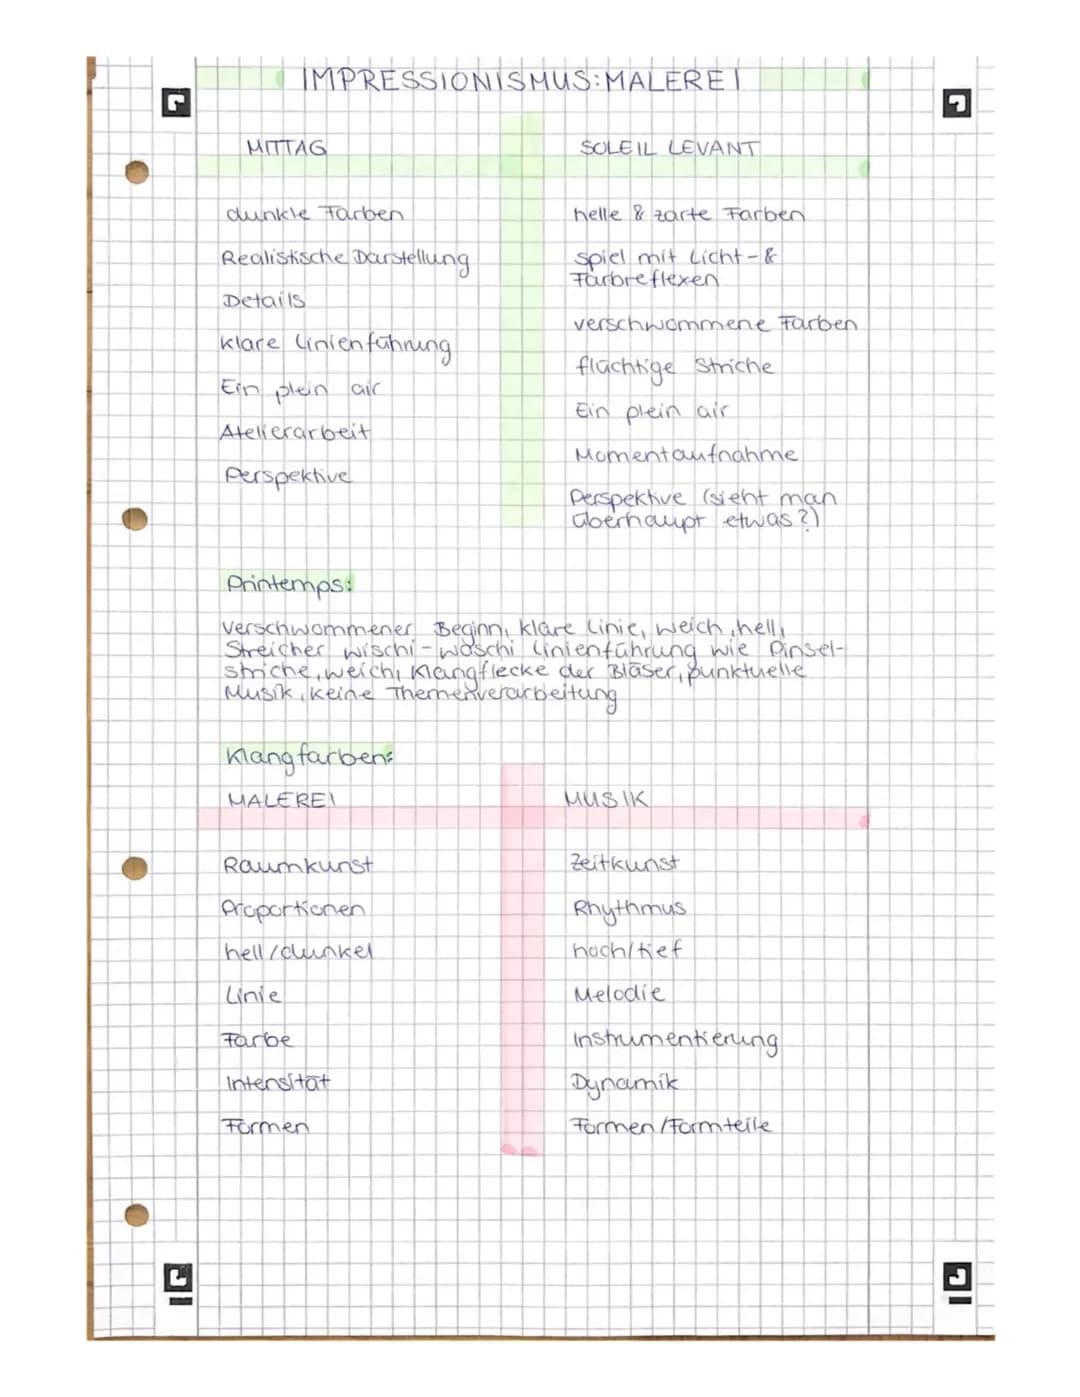 IMPRESSIONISMUS: MALEREI
MITTAG
dunkle Farben
Realistische Darstellung
Details
klare Linienführung
Ein plein air
Atelierarbeit
Perspektive
SOLEIL LEVANT
helle & zarte Farben
spiel mit Licht- &
Farbreflexen
verschwommene Farben
flüchtige Striche
Ein plein air
Momentaufnahme
Perspektive (sieht man
überhaupt etwas?)
Printemps:
verschwommener Beginn, klare Linie, weich, hell,
Streicher wischi-waschi Linienführung wie Pinsel-
striche, weich, Klangflecke der Bläser, punktuelle
Musik, keine Themenverarbeitung
Klangfarben:
MALEREI
MUSIK
Raumkunst
Zeitkunst
Proportionen
Rhythmus
hell/dunkel
hoch/tief
Linie
Melodie
Farbe
Instrumentierung
Intensität
Dynamik
Formen
Formen/Formteile